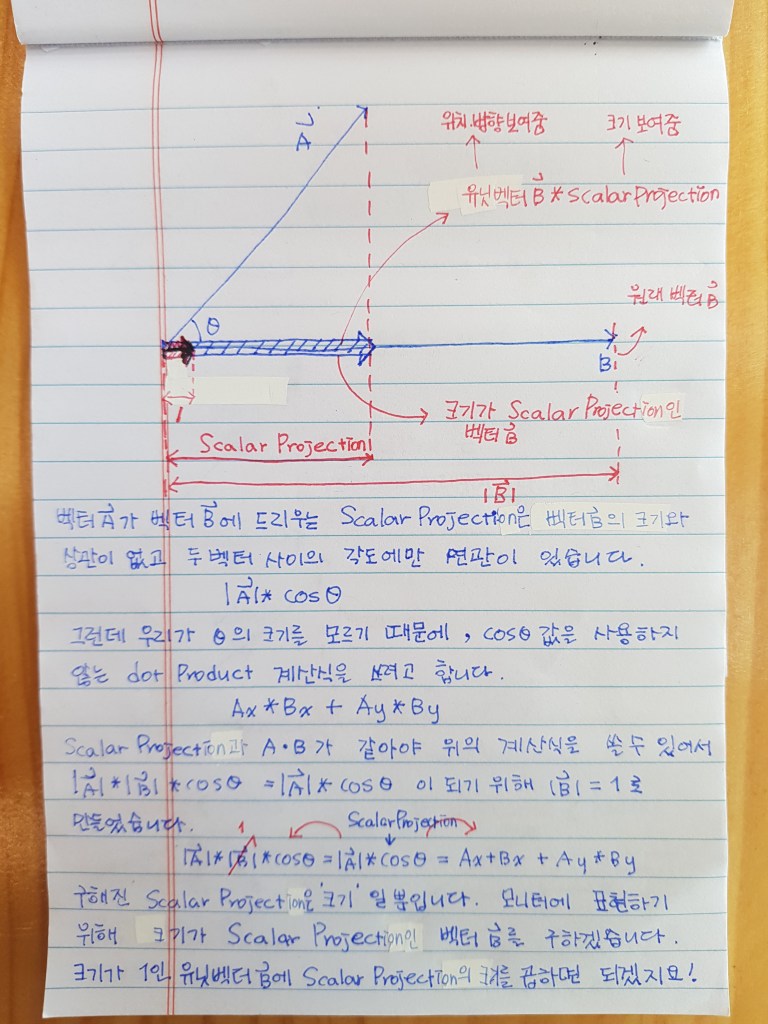 A⃗
위치.방향 보여줌
크기 보여줌
유닛벡터 B⃗ * Scalar Projection
원래 벡터 B⃗
θ
B
1
크기가 Scalar Projection인
벡터 B⃗
Scalar Projection
|B⃗|
벡터 A⃗가 벡터 B⃗에 드리우는 Scalar Projection은 벡터 B⃗의 크기와
상관이 없고 두 벡터 사이의 각도에만 연관이 있습니다.
|A⃗|* cosθ
그런데 우리가 θ의 크기를 모르기 때문에, cosθ 값을 사용하지
않는 dot Product 계산식을 쓰려고 합니다.
Ax*Bx + Ay*By
Scalar Projection과 A·B가 같아야 위의 계산식을 쓸 수 있어서
|A⃗|*|B⃗|*cosθ = |A⃗|* cosθ 이 되기 위해 |B⃗| = 1로
만들었습니다.
1 Scalar Projection
|A⃗|*|B⃗|*cosθ = |A⃗|*cosθ = Ax+Bx + Ay*By
구해진 Scalar Projection은 '크기' 일 뿐입니다. 모니터에 표현하기
위해 크기가 Scalar Projection인 벡터 B⃗를 구하겠습니다.
크기가 1인 유닛벡터 B⃗에 Scalar Projection의 크기를 곱하면 되겠지요!